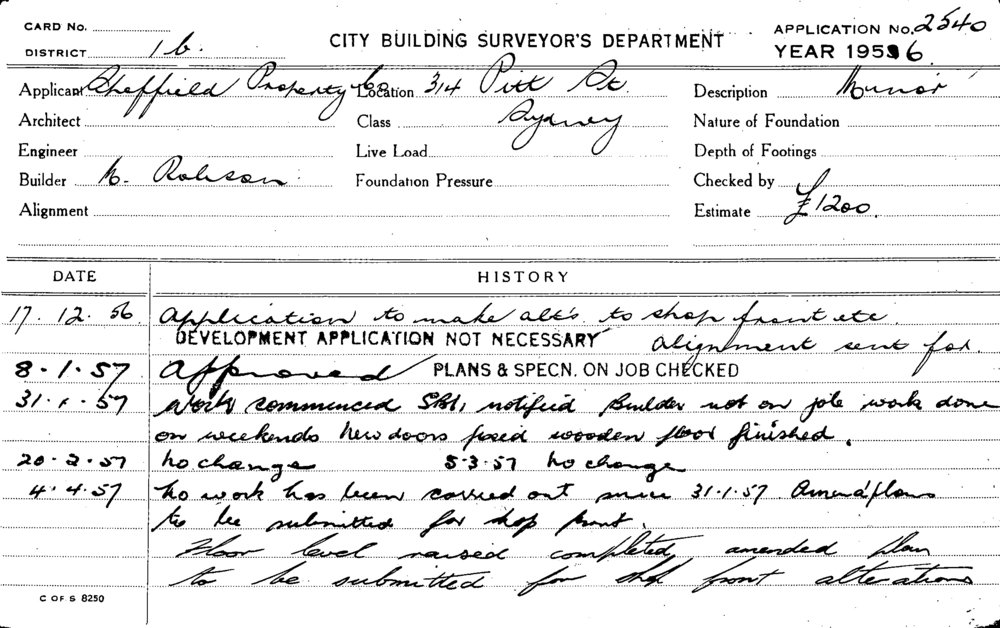 CARD No.
DISTRICT 1b.
CITY BUILDING SURVEYOR'S DEPARTMENT
APPLICATION No. 2540
YEAR 1956.
Applicant Sheffield Property Co. Location 314 Pitt St. Description Minor
Architect Class Sydney Nature of Foundation
Engineer Live Load Depth of Footings
Builder M. Robson. Foundation Pressure Checked by
Alignment Estimate £1200.
DATE HISTORY
17. 12. 56 Application to make alt's to shop front etc
DEVELOPMENT APPLICATION NOT NECESSARY alignment sent for.
8.1.57 Approved PLANS & SPECN. ON JOB CHECKED
31.1.57 Work commenced notified Builder not on job work done
on weekends New doors fixed wooden floor finished.
20.2.57 No change 5.3.57 No change
4.4.57 No work has been carried out since 31.1.57. Amend plans
to be submitted for shop front.
Floor level raised completed, amended plan
to be submitted for shop front alterations
C OF S 8250